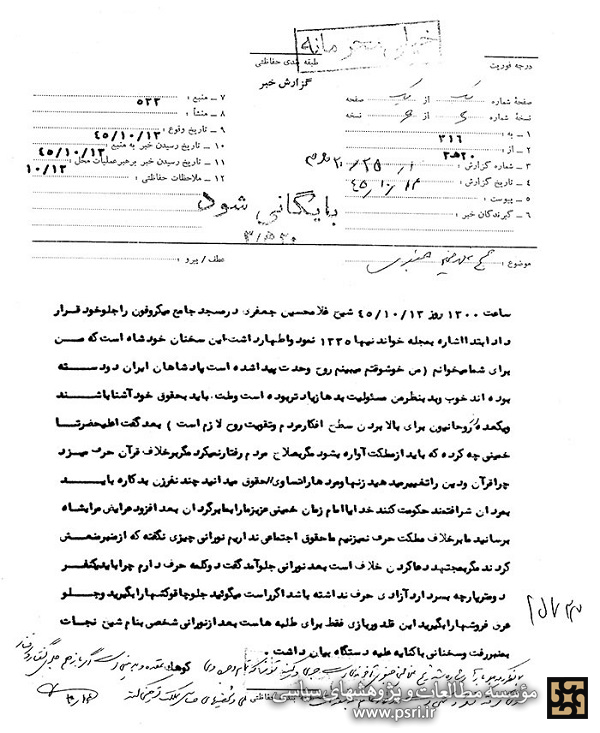 خیلی محرمانه
درجه فوریت
طبقه بندی حفاظتی
گزارش خبر
صفحه شماره یک از یک صفحه
نسخه شماره از نسخه
۱ ـ به : ۳۱۶
۲ ـ از : ۲۰ه۳
۳ ـ شماره گزارش :
۴ ـ تاریخ گزارش : ۴۵/۱۰/۱۴
۵ ـ پیوست :
۶ ـ گیرندگان خبر :
۷ ـ منبع : ۵۳۳
۸ ـ منشأ :
۹ ـ تاریخ وقوع : ۴۵/۱۰/۱۳
۱۰ ـ تاریخ رسیدن خبر به منبع : ۴۵/۱۰/۱۳
۱۱ ـ تاریخ رسیدن خبر برهبر عملیات محل : ۱۰/۱۳
۱۲ ـ ملاحظات حفاظتی :
بایگانی شود
موضوع :
عطف / پیرو :
ساعت ۱۳۰۰ روز ۴۵/۱۰/۱۳ شیخ غلامحسین جعفری در مسجد جامع میکروفون را جلو خود قرار
داد ابتدا اشاره بمجله خواندنیها ۱۳۳۵ نمود و اظهار داشت این سخنان خود شاه است که من
برای شما میخوانم ( من خوشوقتم میبینم روح وحدت پیدا شده است پادشاهان ایران دو دسته
بوده اند خوب و بد بنظر من مسئولیت بدها زیادتر بوده است وملت باید بحقوق خود آشنا باشند
ویکعده از روحانیون برای بالا بردن سطح افکار مردم وتقویت روح لازم است ) بعد گفت اعلیحضرتا
خمینی چه کرده که باید از مملکت آواره بشود مگر بصلاح مردم رفتار نمیکرد مگر برخلاف قرآن حرف میزد
چرا قرآن و دین را تغییر میدهید زنها ومردها را تساوی حقوق میدانید چند نفر زن بدکاره باید
بمردان شرافتمند حکومت کنند خدایا امام زمان خمینی عزیز ما را بما برگردان بعد افزود عرایض مرا بشاه
برسانید ما برخلاف مملکت حرف نمیزنیم ما حقوق اجتماعی نداریم نورانی چیزی نگفته که از منبر منعش
کردند مگر بمجتهد دعا کردن خلاف است بعد نورانی جلو آمد گفت دو کلمه حرف دارم چرا باید یکنفر
دو متر پارچه بسر دارد آزادی حرف نداشته باشد اگر راست میگوئید جلو چاقوکشها را بگیرید وجلو
عرق فروشها را بگیرید این قلدربازی فقط برای طلبه هاست بعد از نورانی شخصی بنام شیخ نجات
بمنبر رفت وسخنانی باکنایه علیه دستگاه بیان داشت .
مؤسسه مطالعات و پژوهشهای سیاسی
www.psri.ir